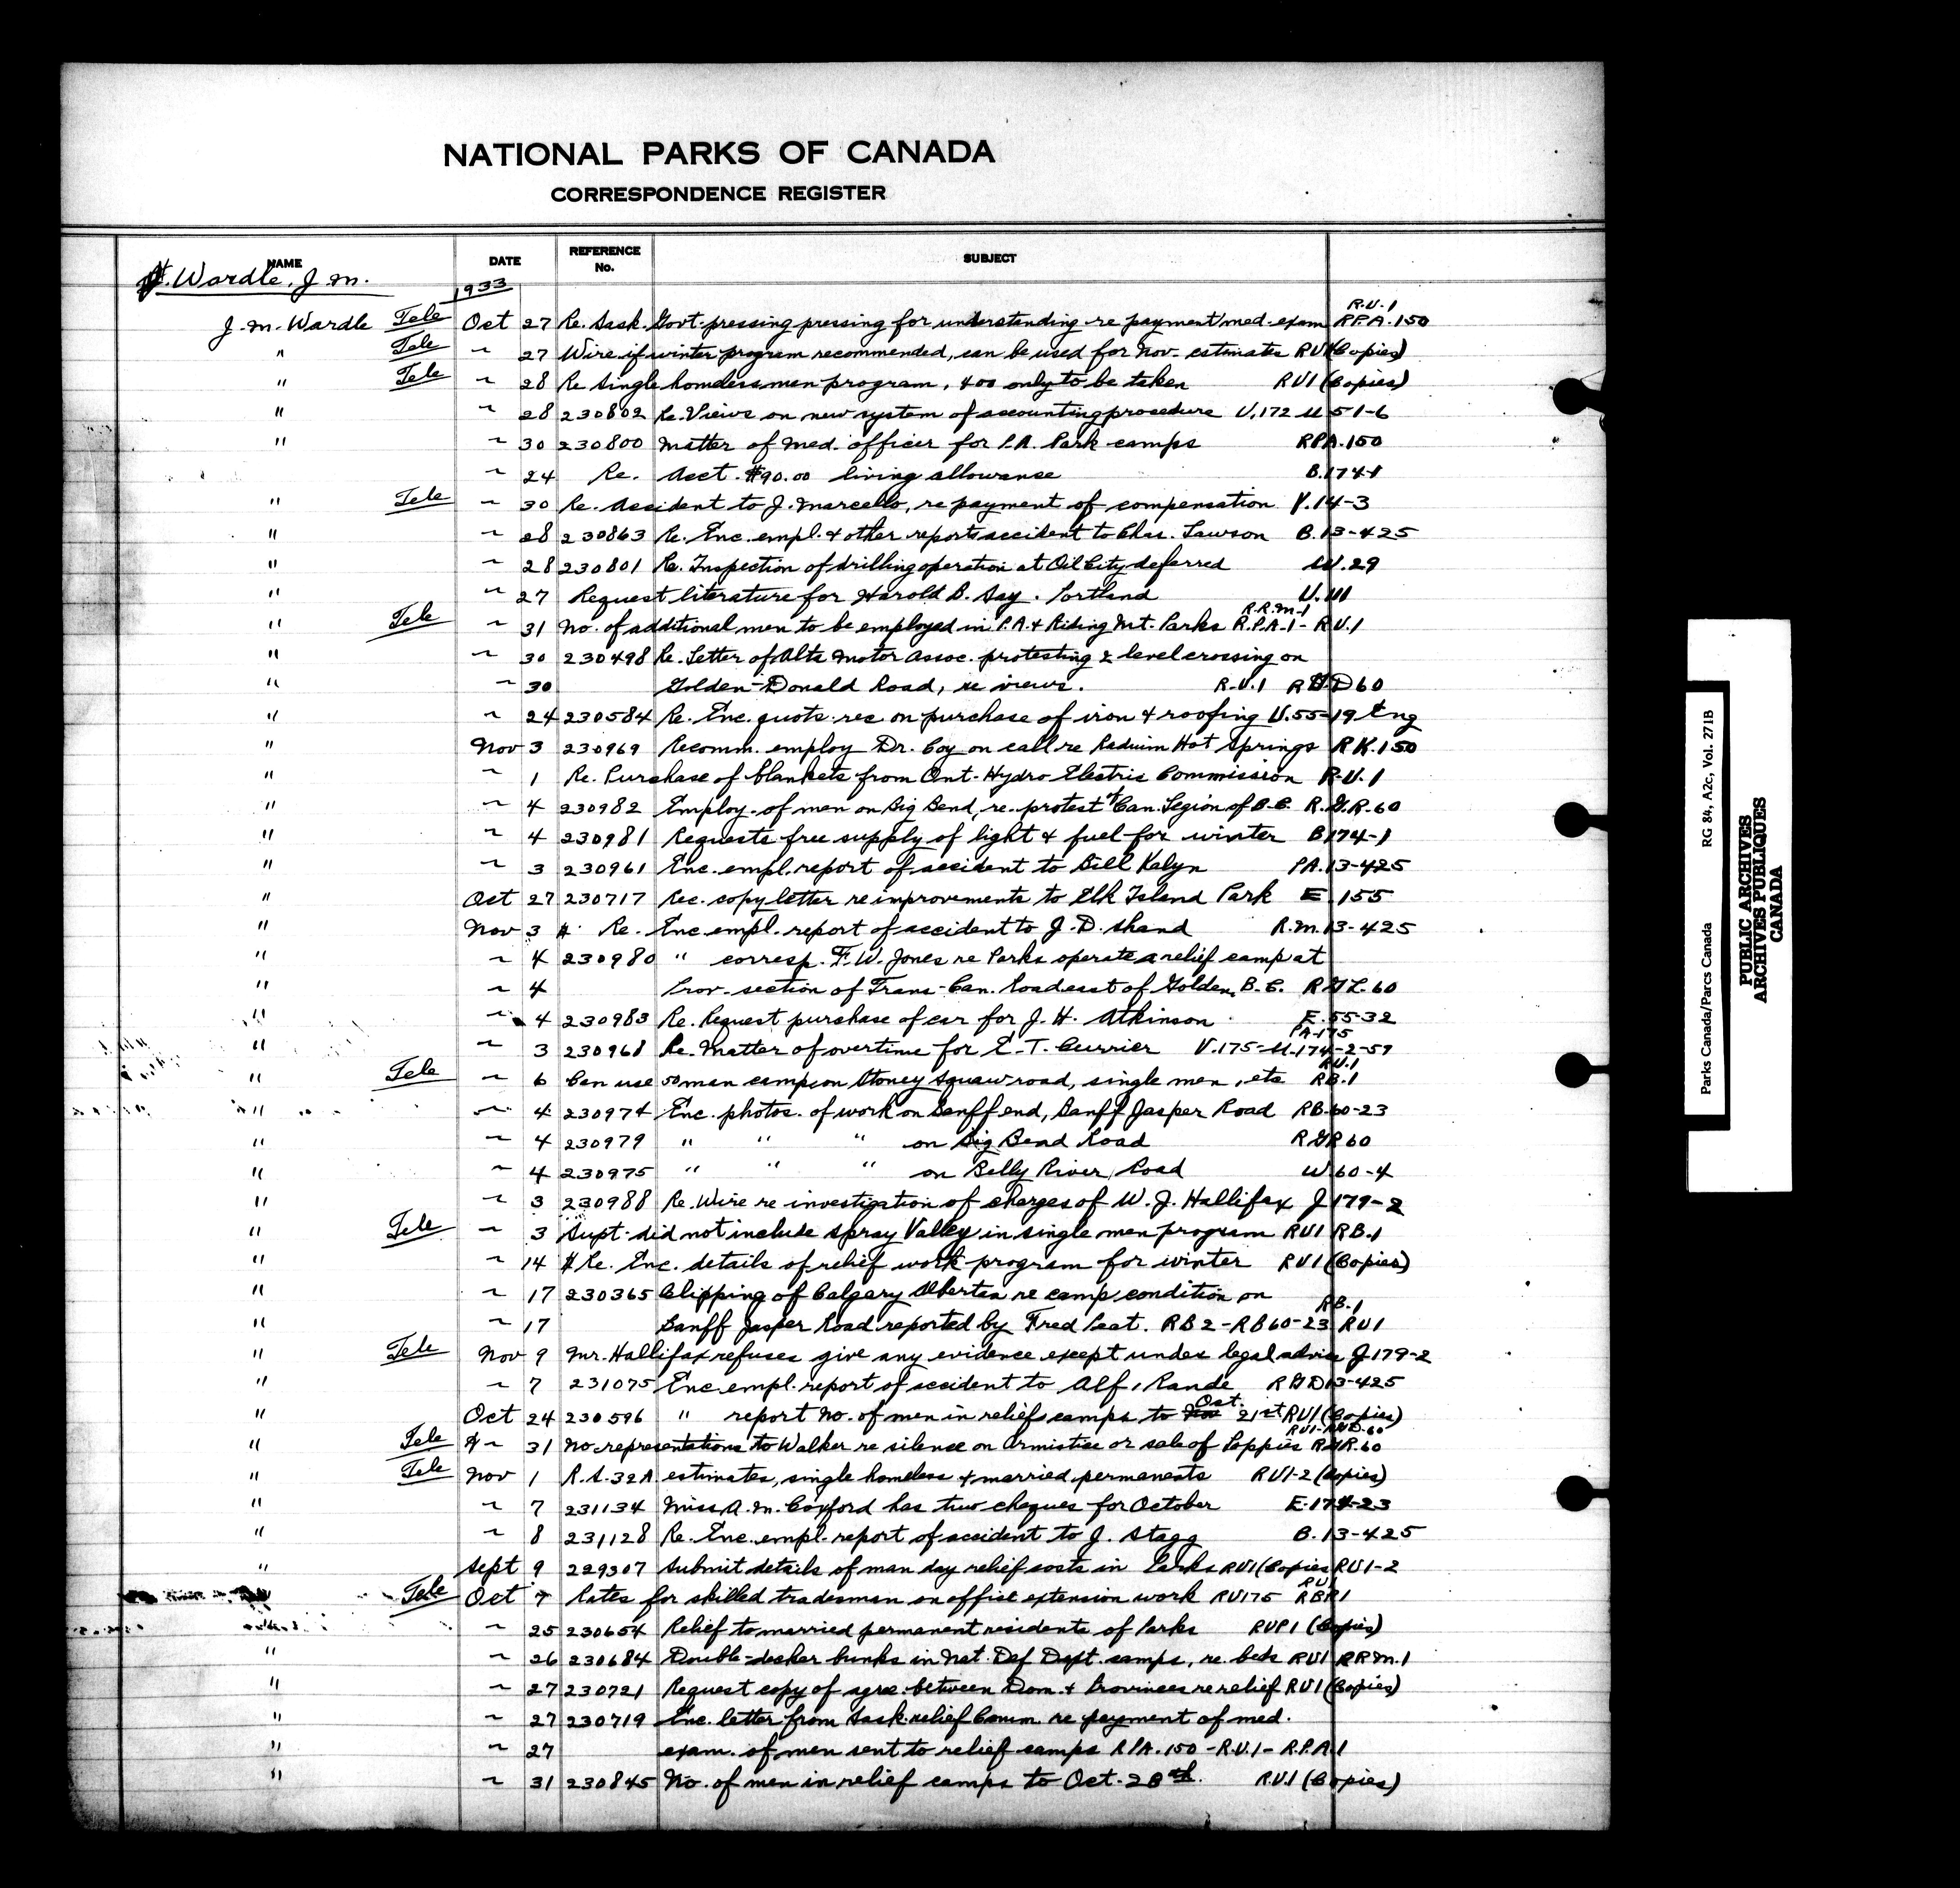 NATIONAL PARKS OF CANADA
CORRESPONDENCE REGISTER
NAME DATE REFERENCE No. SUBJECT
Wardle, J. M.
1933
R.U.1
J. M. Wardle Tele Oct 27 Re. Sask. Govt. pressing pressing for understanding re payment med. exam R.P.A. 150
" Tele ~ 27 Wire if winter program recommended, can be used for Nov. estimates RU1 (Copies)
" Tele ~ 28 Re single homeless men program, 400 only to be taken RU1 (Copies)
" ~ 28 230802 Re. Views on new system of accounting procedure U.172 U 51-6
" ~ 30 230800 Matter of Med. officer for P.A. Park camps RPA.150
~ 24 Re. Acct. $90.00 living allowance B.174-1
" Tele ~ 30 Re. Accident to J. Marcello, re payment of compensation Y.14-3
" ~ 28 230863 Re. Enc. empl. & other reports accident to Chas. Lawson B.13-425
" ~ 28 230801 Re. Inspection of drilling operation at Oil City deferred W.29
" ~ 27 Request literature for Harold B. Say. Portland U.111
R.R.M-1
" Tele ~ 31 No. of additional men to be employed in P.A. & Riding Mt. Parks R.P.A-1- R.U.1
" ~ 30 230498 Re. Letter of Alta Motor Assoc. protesting 2 level crossing on
" ~ 30 Golden-Donald Road, re views. R.U.1 R D 60
" ~ 24 230584 Re. Enc. quots. rec on purchase of iron & roofing U.55-19 Eng
" Nov 3 230969 Recomm. employ Dr. Coy on call re Radium Hot Springs RK.150
" ~ 1 Re. Purchase of blankets from Ont. Hydro Electric Commission R.U.1
" ~ 4 230982 Employ. of men on Big Bend, re. protest of Can. Legion of B.C. R.G.R.60
" ~ 4 230981 Requests free supply of light & fuel for winter B174-1
" ~ 3 230961 Enc. empl. report of accident to Bill Kalyn PA.13-425
" Oct 27 230717 Rec. copy letter re improvements to Elk Island Park E.155
" Nov 3 Re. Enc empl. report of accident to J. D. Shand R.M.13-425
" ~ 4 230980 " corresp. F. W. Jones re Parks operate a relief camp at
" ~ 4 Prov. section of Trans-Can. Road east of Golden, B.C. RGL.60
" ~ 4 230983 Re. Request purchase of car for J. H. Atkinson E.55-32
PA.175
" ~ 3 230968 Re. Matter of overtime for E. T. Currier V.175-U.174-2-59
RU.1
" Tele ~ 6 Can use 50 man camp on Stoney Squaw road, single men, etc RB.1
" ~ 4 230974 Enc. photos. of work on Banff end, Banff Jasper Road RB.60-23
" ~ 4 230979 " " " on Big Bend Road RGR60
" ~ 4 230975 " " " on Belly River Road W.60-4
" ~ 3 230988 Re. Wire re investigation of charges of W. J. Hallifax J179-2
" Tele ~ 3 Supt. did not include Spray Valley in single men program RU1 RB.1
" ~ 14 $ Re. Enc. details of relief work program for winter RU1 (Copies)
" ~ 17 230365 Clipping of Calgary Albertan re camp condition on
RB.1
" ~ 17 Banff Jasper Road reported by Fred Peat. RB2-RB60-23 RU1
" Tele Nov 9 Mr. Hallifax refuses give any evidence except under legal advice J179-2
" ~ 7 231075 Enc. empl. report of accident to Alf. Rande RGD13-425
Oct.
" Oct 24 230596 " report No. of men in relief camps to Nov 21st RU1 (Copies)
RU1-RGD.60
" Tele ~ 31 No representations to Walker re silence on Armistice or sale of Poppies RGR.60
" Tele Nov 1 R.A.32A estimates, single homeless & married permanents RU1-2 (Copies)
" ~ 7 231134 Miss A. M. Coxford has two cheques for October E.174-23
" ~ 8 231128 Re. Enc. empl. report of accident to J. Stagg B.13-425
" Sept 9 229307 Submit details of man day relief costs in Parks RU1 (Copies RU1-2
RU1
Tele Oct 7 Rates for skilled tradesman on office extension work RU175 RBR1
~ 25 230654 Relief to married permanent residents of Parks RUP1 (Copies)
" ~ 26 230684 Double-decker bunks in Nat. Def Dept. camps, re. beds RU1 RRM.1
" ~ 27 230721 Request copy of agree. between Dom. & Provinces re relief RU1 (Copies)
" ~ 27 230719 Enc. letter from Sask. relief Comm. re payment of med.
" ~ 27 exam. of men sent to relief camps RPA.150-R.U.1-R.P.A.1
" ~ 31 230845 No. of men in relief camps to Oct. 28th. R.U.1 (Copies)
Parks Canada/Parcs Canada RG 84, A2c, Vol. 271B
PUBLIC ARCHIVES
ARCHIVES PUBLIQUES
CANADA